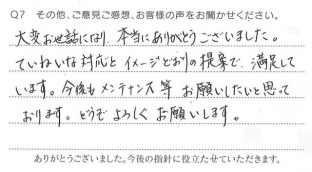 Q7 その他、ご意見ご感想、お客様の声をお聞かせください。
大変お世話になり、本当にありがとうございました。
ていねいな対応とイメージどおりの提案で、満足して
います。今後もメンテナンス等お願いしたいと思って
おります。どうぞよろしくお願いします。
ありがとうございました。今後の指針に役立たせていただきます。